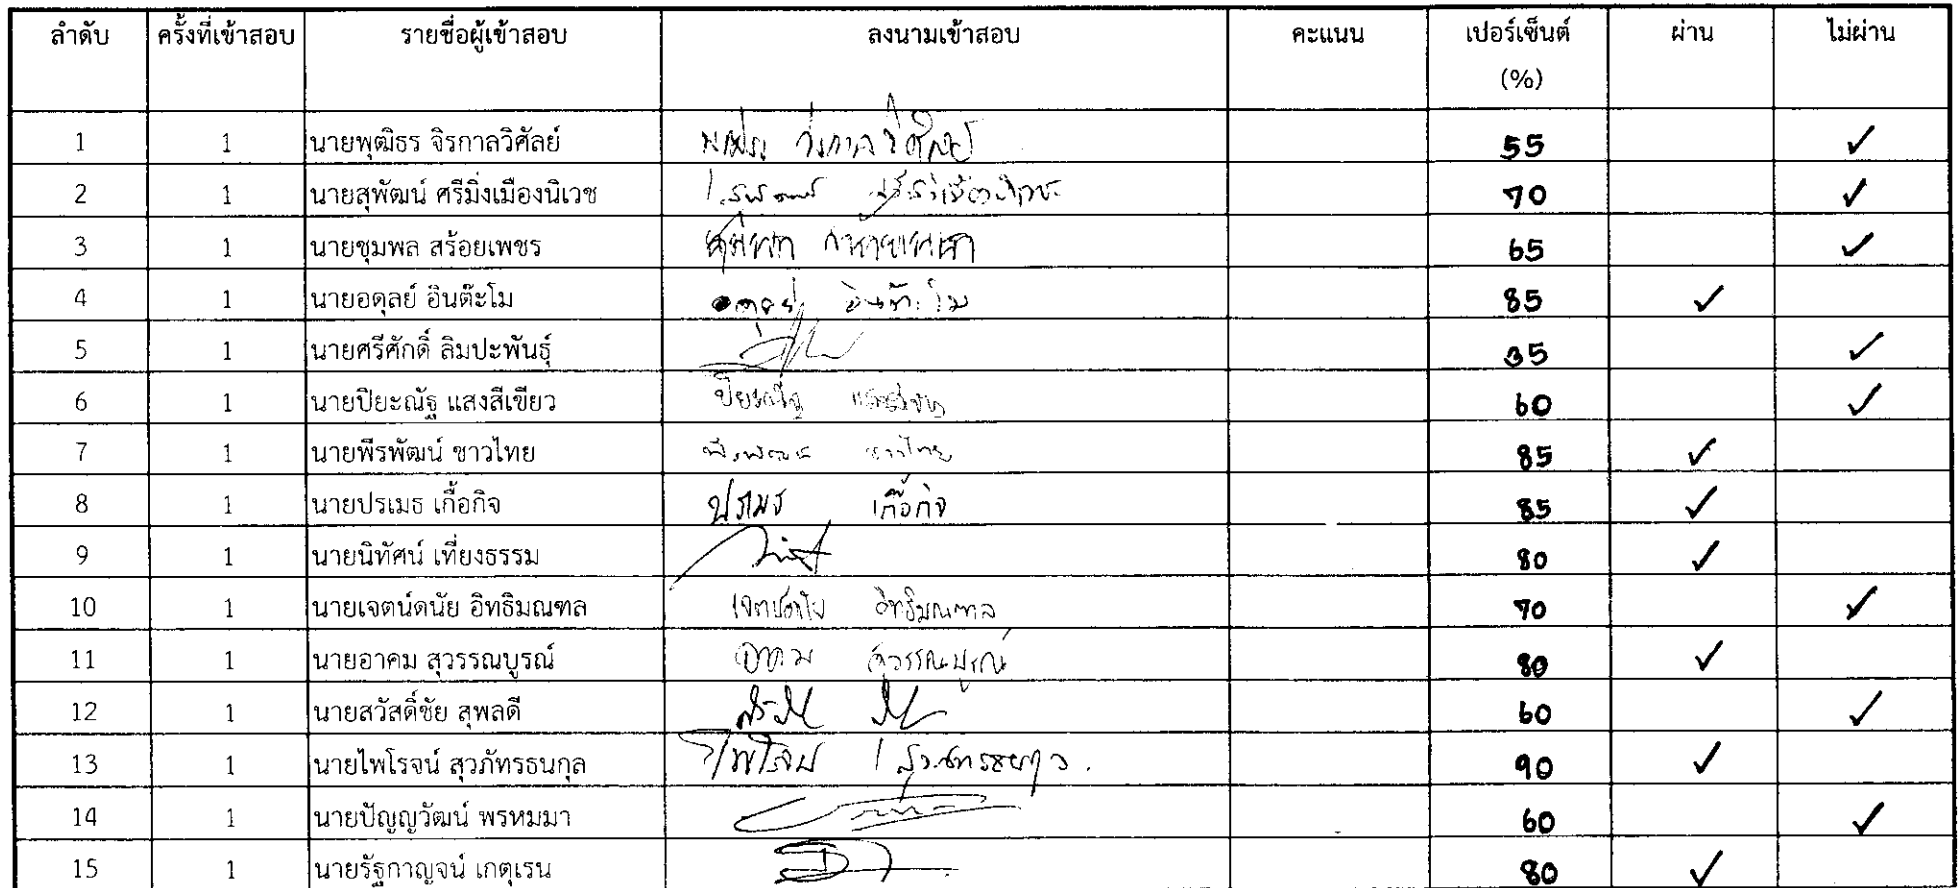 ลำดับ ครั้งที่เข้าสอบ รายชื่อผู้เข้าสอบ ลงนามเข้าสอบ คะแนน เปอร์เซ็นต์ (%) ผ่าน ไม่ผ่าน
1 1 นายพุฒิธร จิรกาลวิศัลย์ 55 ✓
2 1 นายสุพัฒน์ ศรีมิ่งเมืองนิเวช 70 ✓
3 1 นายชุมพล สร้อยเพชร 65 ✓
4 1 นายอดุลย์ อินต๊ะโม อดุลย์ อินต๊ะโม 85 ✓
5 1 นายศรีศักดิ์ ลิมปะพันธุ์ 35 ✓
6 1 นายปิยะณัฐ แสงสีเขียว 60 ✓
7 1 นายพีรพัฒน์ ชาวไทย พีรพัฒน์ ชาวไทย 85 ✓
8 1 นายปรเมธ เกื้อกิจ ปรเมธ เกื้อกิจ 85 ✓
9 1 นายนิทัศน์ เที่ยงธรรม 80 ✓
10 1 นายเจตน์ดนัย อิทธิมณฑล เจตน์ดนัย อิทธิมณฑล 70 ✓
11 1 นายอาคม สุวรรณบูรณ์ อาคม สุวรรณบูรณ์ 80 ✓
12 1 นายสวัสดิ์ชัย สุพลดี 60 ✓
13 1 นายไพโรจน์ สุวภัทรธนกุล ไพโรจน์ 90 ✓
14 1 นายปัญญวัฒน์ พรหมมา 60 ✓
15 1 นายรัฐกาญจน์ เกตุเรน 80 ✓